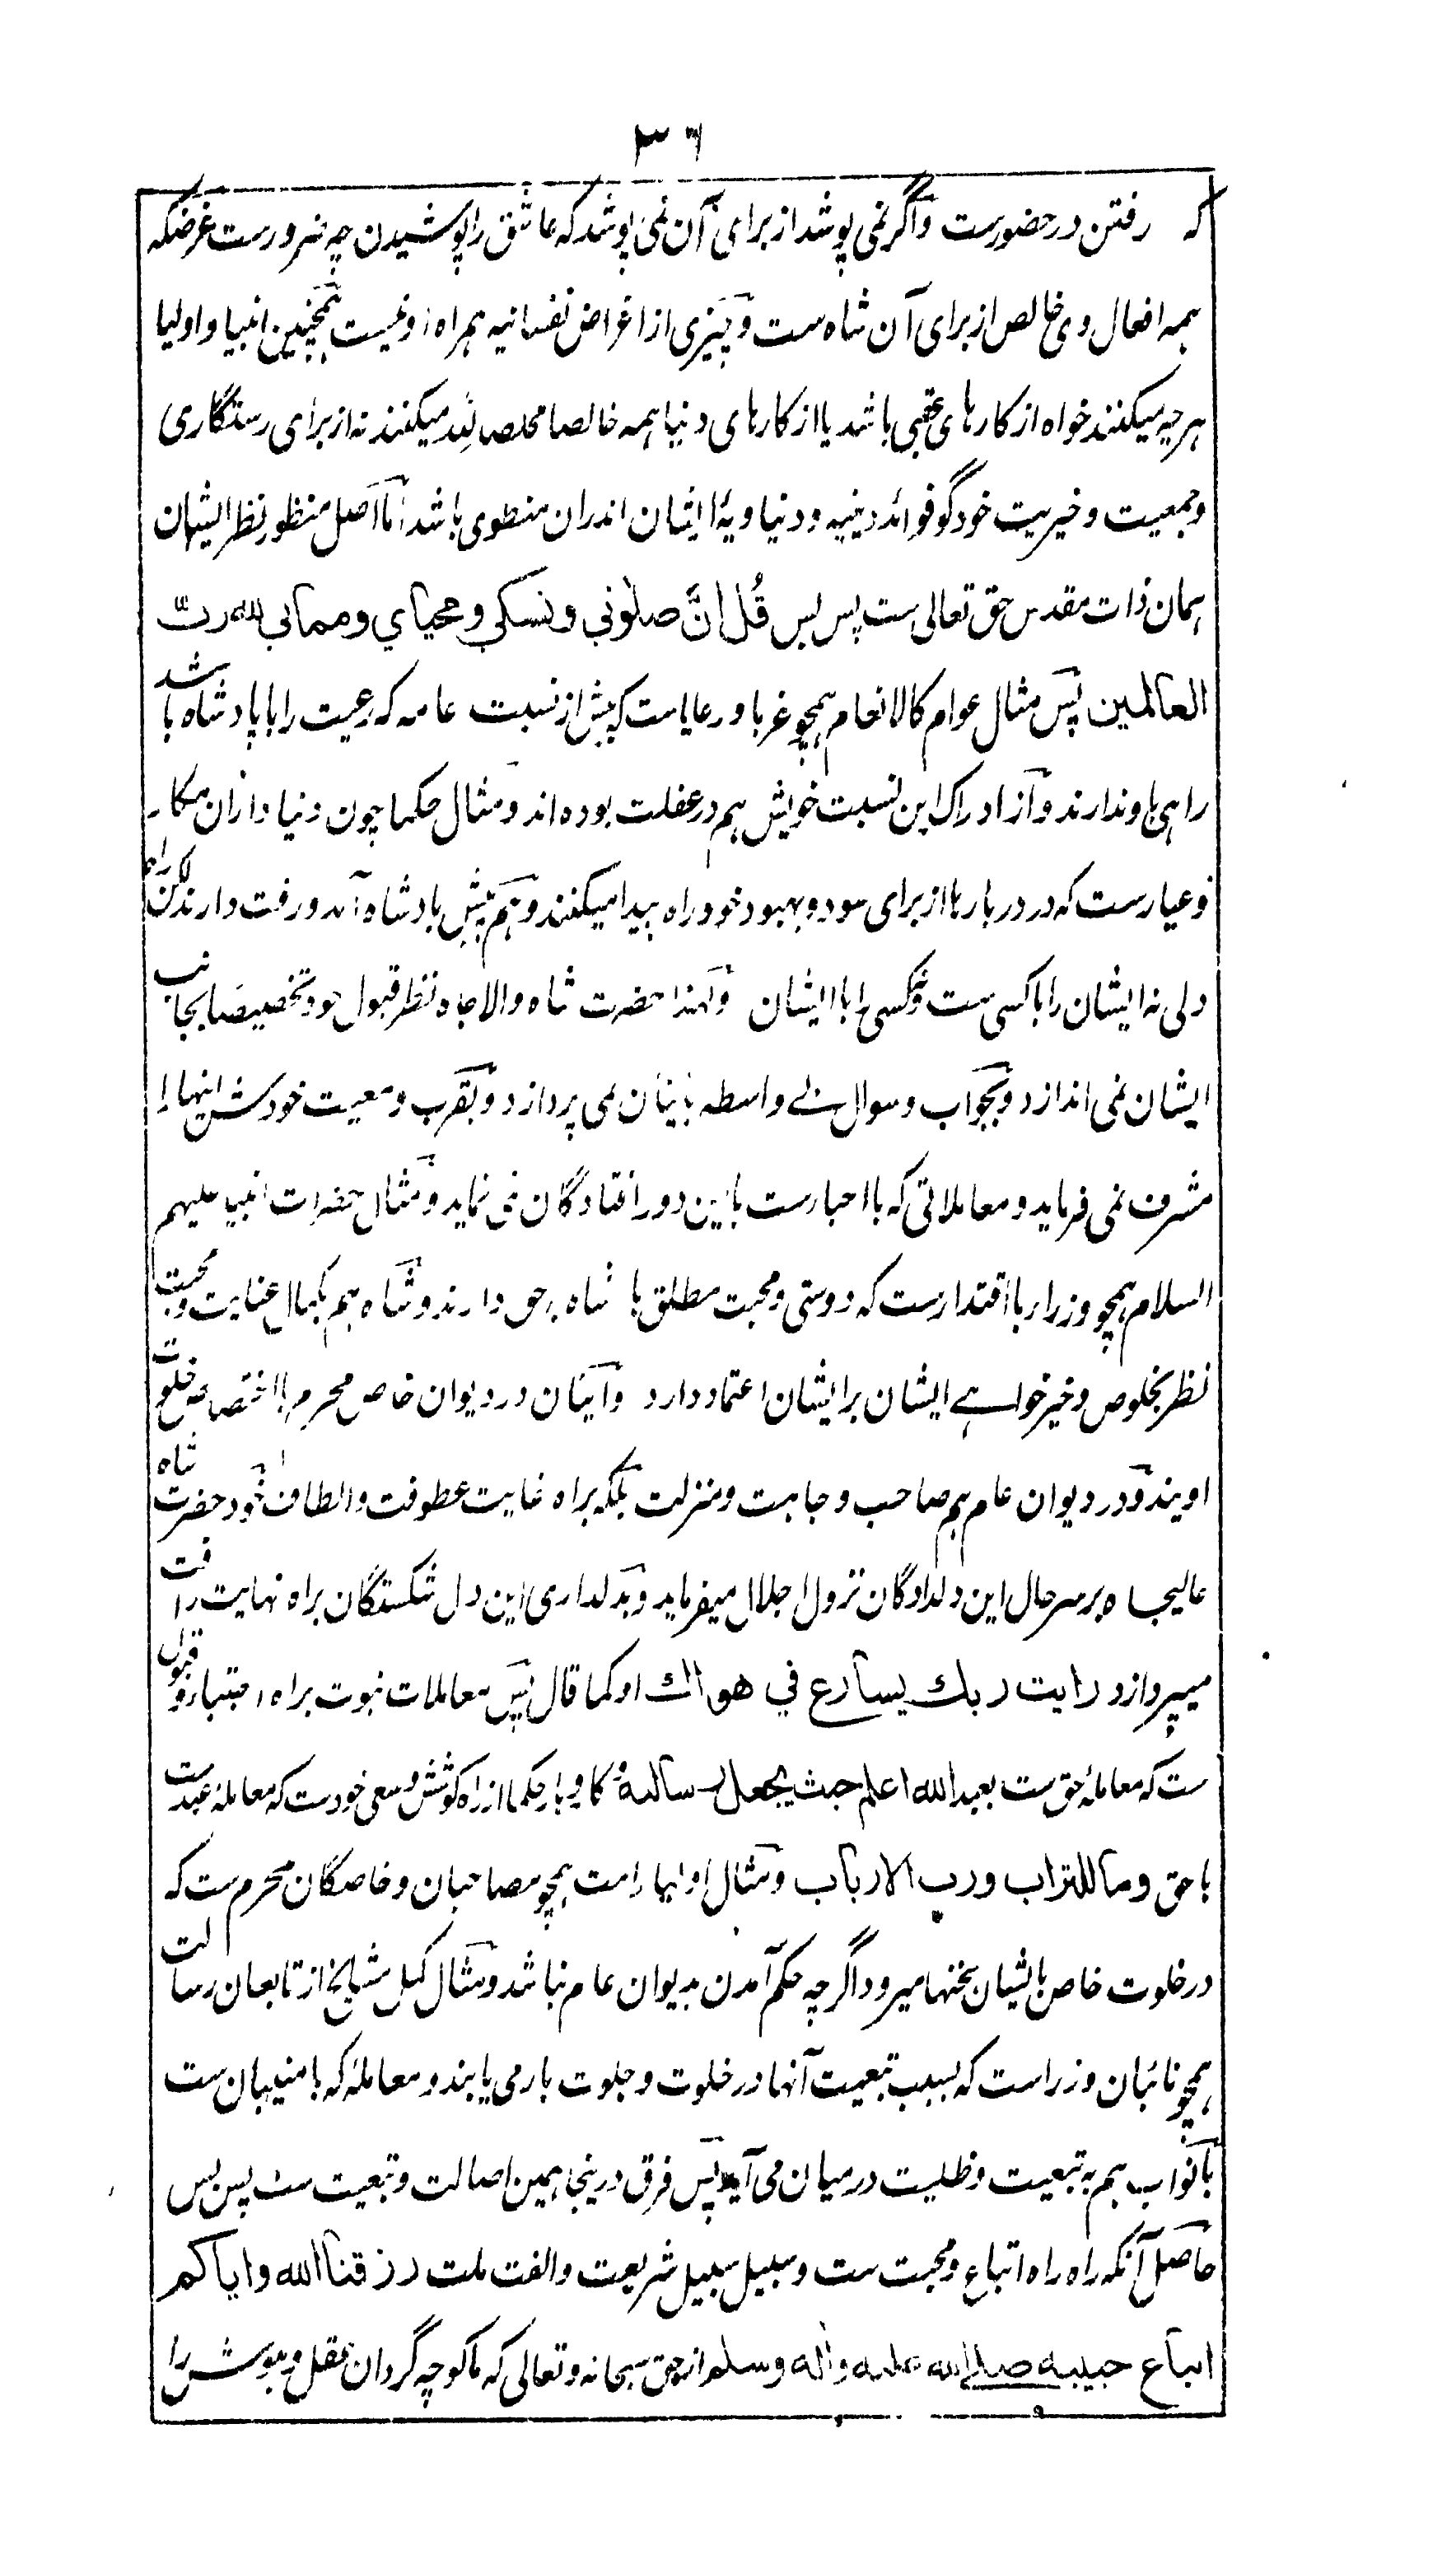 ۳۶
که رفتن در حضورست و اگر نمی پوشد از برای آن نمی پوشد که عاشق را پوشیدن چه ضرورست غرضکه
همه افعال وی خالص از برای آن شاه ست و چیزی از اغراض نفسانیه همراه او نیست همچنین انبیا و اولیا
هرچه میکنند خواه از کارهای عقبی باشد یا از کارهای دنیا همه خالصا مخلصا لله میکنند نه از برای رستگاری
و جمعیت و خیریت خود گو فوائد دینیه و دنیاویهٔ ایشان اندران منطوی باشد اما اصل منظور نظر ایشان
همان ذات مقدس حق تعالی ست پس بس قُل انَّ صلوتي ونسكي ومحياي ومماتي لله ربّ
العالمين پس مثال عوام کالانعام همچو غربا و رعایاست که بیش از نسبت عامه که رعیت را با پادشاه باشد
راهی باو ندارند و از ادراک این نسبت خویش هم در غفلت بوده اند و مثال حکما چون دنیا داران مکار
و عیارست که در دربارها از برای سود و بهبود خود راه پیدا میکنند و هم پیش بادشاه آمد و رفت دارند لاکن راه
دلی نه ایشان را با کسی ست و نه کسی را با ایشان و لهذا حضرت شاه والاجاه نظر قبول خود تخصیصا بجانب
ایشان نمی اندازد و بجواب و سوال بے واسطه باینان نمی پردازد و بقرب و معیت خودش اینها را
مشرف نمی فرماید و معاملاتی که با احبارست باین دور افتادگان نمی نماید و مثال حضرات انبیا علیهم
السلام همچو وزرا با اقتدارست که دوستی و محبت مطلق با شاه برحق دارند و شاه هم بکمال عنایت و محبت
نظر بخلوص و خیرخواهے ایشان بر ایشان اعتماد دارد و اینان در دیوان خاص محرم با اختصاص خلوت
اویند و در دیوان عام هم صاحب وجاهت و منزلت بلکه براه غایت عطوفت و الطاف خود حضرت شاه
عالیجاه بر سر حال این دلدادگان نزول اجلال میفرماید و بدلداری این دل شکستگان براه نهایت رافت
میپردازد رايت ربك يسارع في هواك او کما قال پس معاملات نبوت براه اجتبا و قبول
ست که معاملهٔ حق ست بعبد الله اعلم حيث يجعل رسالته و کاروبار حکما از راه کوشش و سعی خودست که معاملهٔ عبدست
با حق وما للتراب ورب الارباب و مثال اولیا راست همچو مصاحبان و خاصگان محرم ست که
در خلوت خاص بایشان سخنها میرود اگرچه حکم آمدن بدیوان عام نباشد و مثال کمل مشایخ از تابعان رسالت
همچو نائبان وزراست که بسبب تبعیت آنها در خلوت و جلوت بار می یابند و معاملهٔ که با منیبان ست
با نواب هم به تبعیت و ظلیت درمیان می آید پس فرق درینجا همین اصالت و تبعیت ست پس بس
حاصل آنکه راه راه اتباع و محبت ست و سبیل سبیل شریعت و الفت ملت رزقنا الله واياكم
اتباع حبيبه صلى الله عليه واله وسلم از حق سبحانه و تعالی که ما کوچه گردان عقل و هوش را